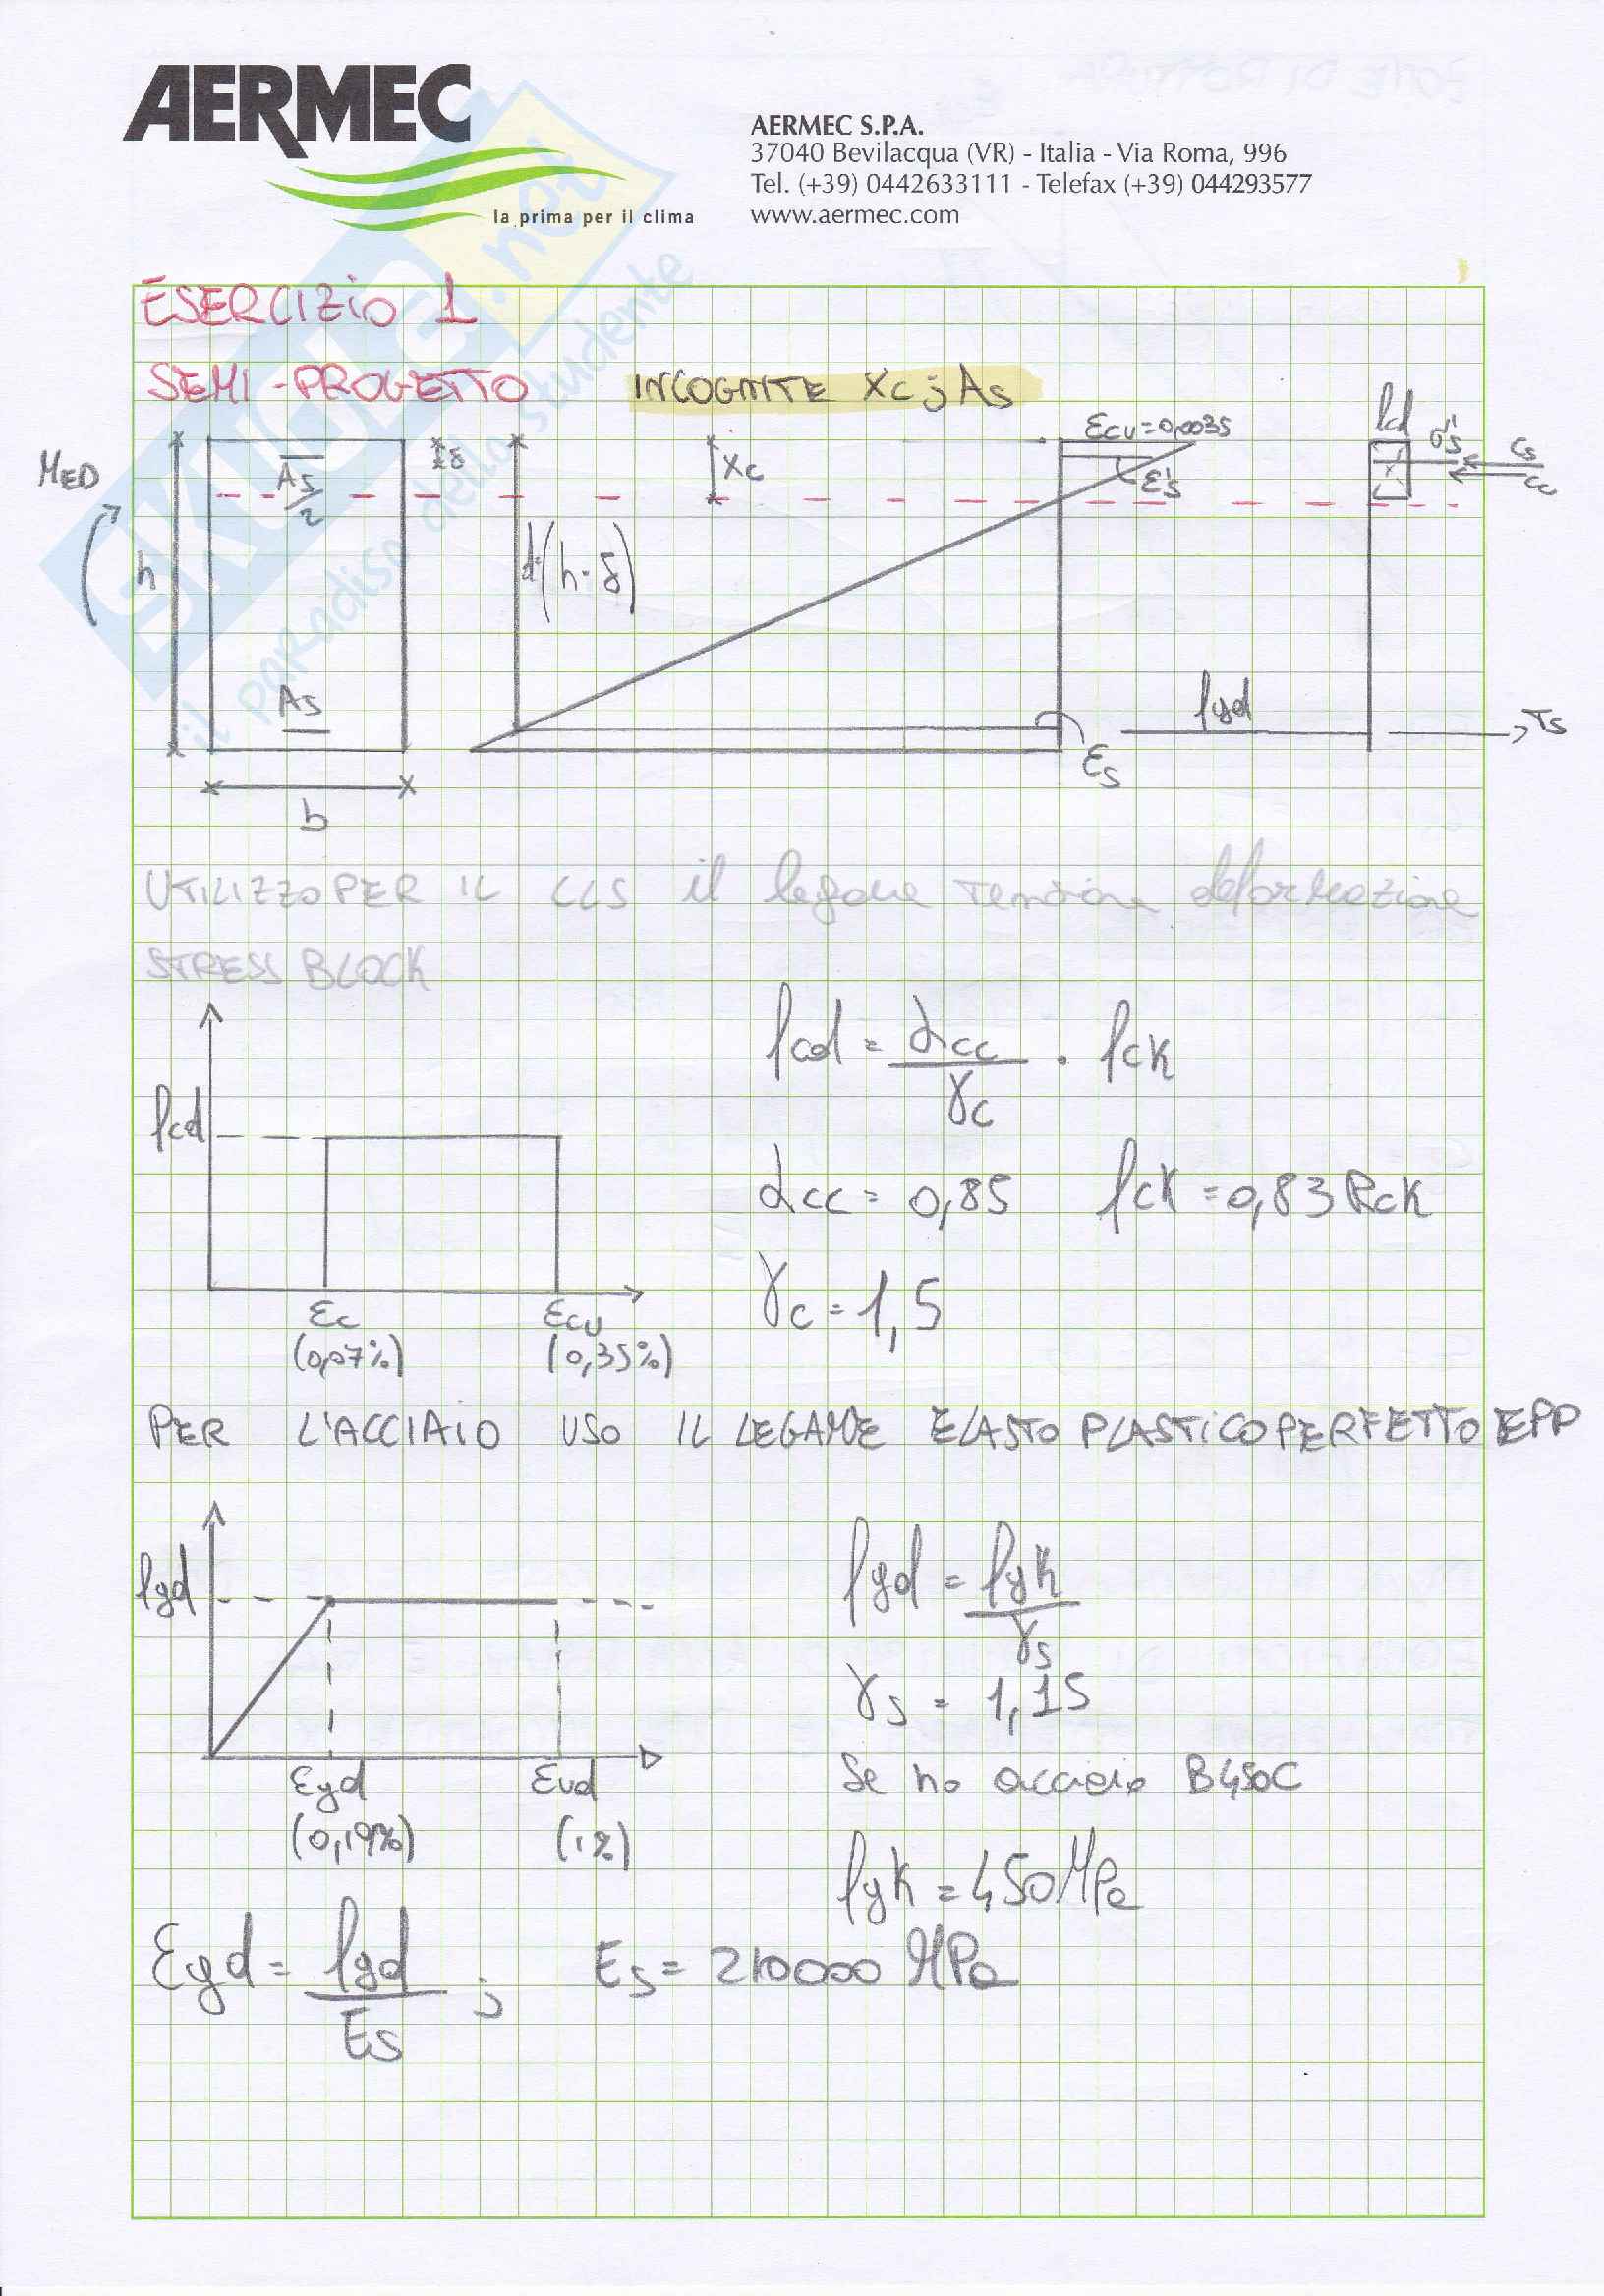 AERMEC
la prima per il clima
AERMEC S.P.A.
37040 Bevilacqua (VR) - Italia - Via Roma, 996
Tel. (+39) 0442633111 - Telefax (+39) 044293577
www.aermec.com
SKUOLA.net
il paradiso dello studente
ESERCIZIO 1
SEMI-PROGETTO INCOGNITE Xc; As
MED
h
As/2
As
b
δ
d=(h-δ)
Xc
Ecu=0,0035
E's
Es
fcd
σ's
Cs
Cc
fyd
Ts
UTILIZZO PER IL CLS il legame tensione deformazione
STRESS BLOCK
fcd
Ec
(0,07%)
Ecu
(0,35%)
fcd = αcc/γc · fck
αcc = 0,85 fck = 0,83 Rck
γc = 1,5
PER L'ACCIAIO USO IL LEGAME ELASTO PLASTICO PERFETTO EPP
fyd
Eyd
(0,19%)
Eud
(1%)
fyd = fyk/γs
γs = 1,15
Se ho acciaio B450C
fyk = 450 MPa
Eyd = fyd/Es ; Es = 210000 MPa